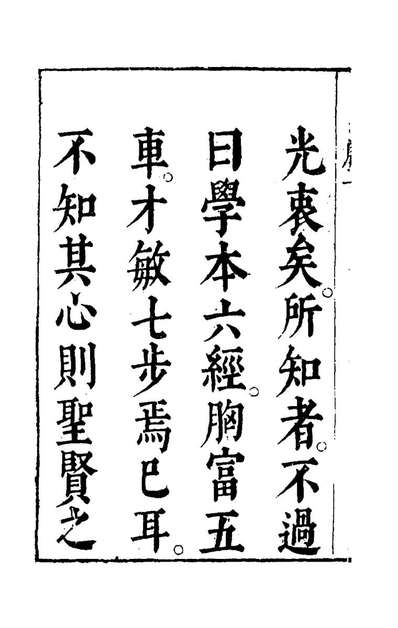 光衷矣。所知者。不過
曰學本六經。胸富五
車。才敏七步焉已耳。
不知其心則聖賢之